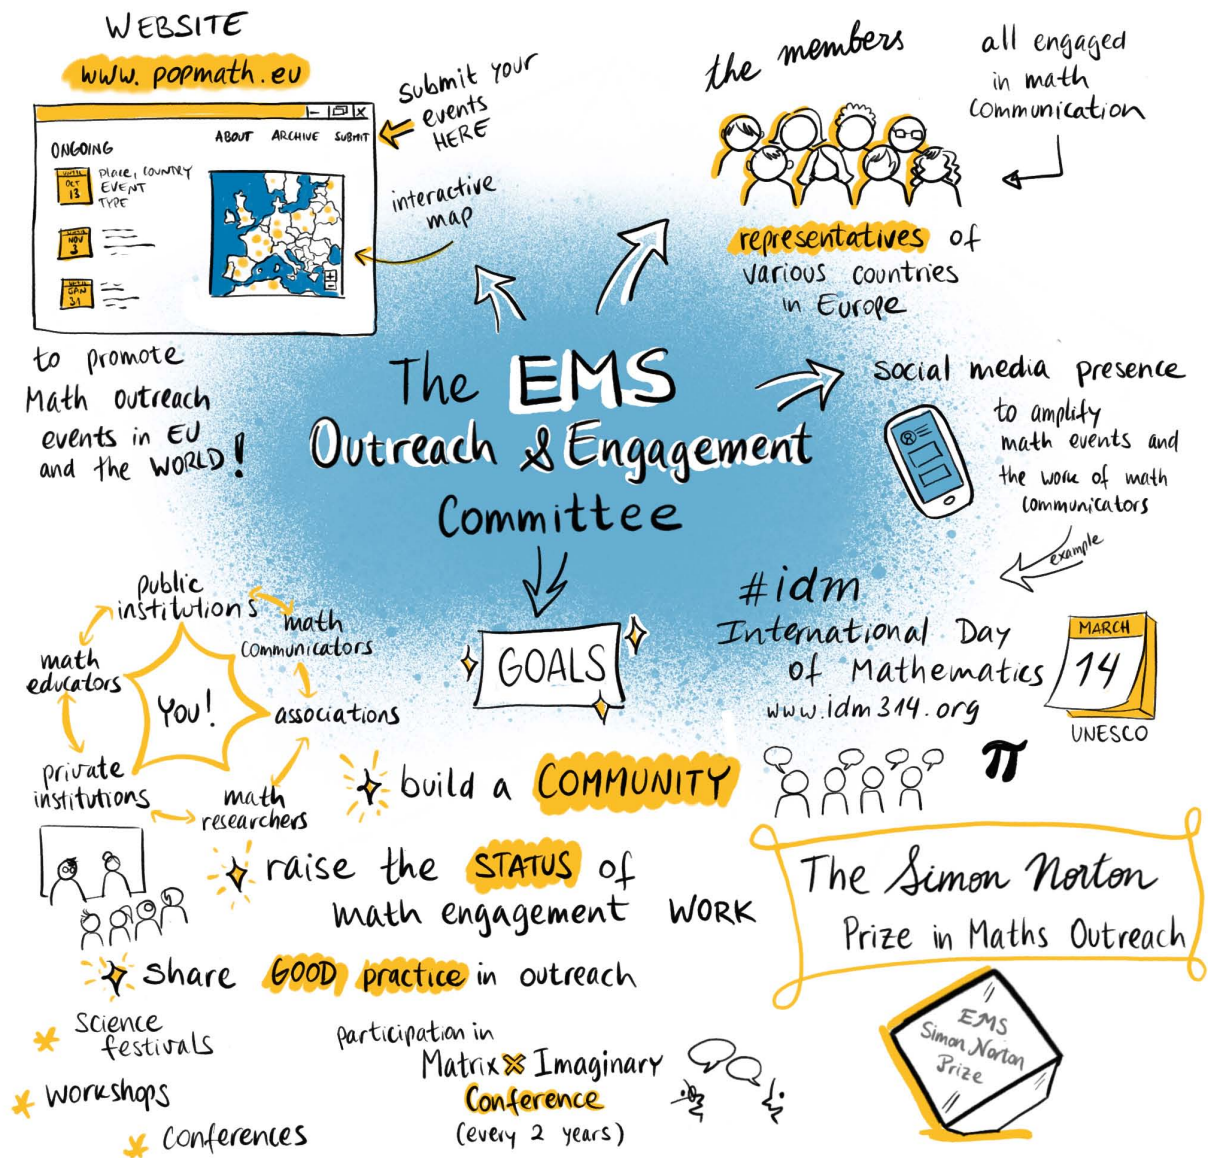 WEBSITE
www.popmath.eu
submit your
events
HERE
ABOUT ARCHIVE SUBMIT
ONGOING
UNTIL
OCT
13
PLACE, COUNTRY
EVENT
TYPE
NOV
3
UNTIL
JAN
31
+
-
interactive
map
to promote
Math outreach
events in EU
and the WORLD!
the members
all engaged
in math
communication
representatives of
various countries
in Europe
The EMS
Outreach & Engagement
Committee
social media presence
to amplify
math events and
the work of math
communicators
example
#idm
International Day
of Mathematics
www.idm314.org
MARCH
14
UNESCO
π
GOALS
public
institutions
math
communicators
associations
math
researchers
private
institutions
math
educators
You!
build a COMMUNITY
raise the STATUS of
math engagement WORK
share GOOD practice in outreach
science
festivals
workshops
conferences
participation in
Matrix × Imaginary
Conference
(every 2 years)
The Simon Norton
Prize in Maths Outreach
EMS
Simon Norton
Prize